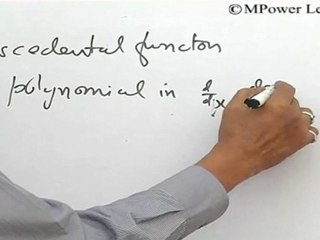 ©MPower Le
scedental functon
polynomial in d/dx d